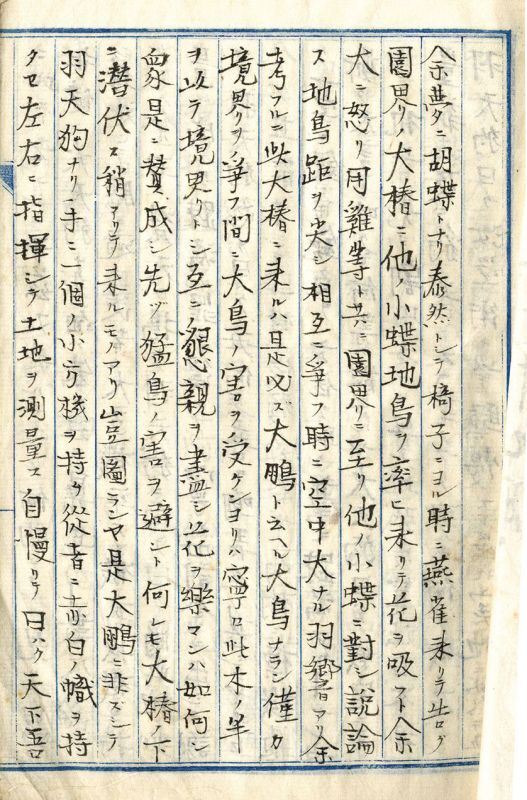 余夢ニ胡蝶トナリ泰然トシテ椅子ニヨル時ニ燕雀来リテ告ク
園界ノ大椿ニ他ノ小蝶地鳥ヲ率ヒ来リテ花ヲ吸フト余
大ニ怒リ用雞等ト共ニ園界ニ至リ他ノ小蝶ニ對シ説論
ス地鳥距ヲ尖シ相互ニ爭フ時ニ空中大ナル羽響アリ余
考フルニ此大椿ニ来ルハ是必ズ大鵬ト云ヘル大鳥ナラン僅カ
境界ヲ爭フ間ニ大鳥ノ害ヲ受ケンヨリハ寧ロ此木ノ半
ヲ以テ境界トシ互ニ懇親ヲ盡シ花ヲ樂マンハ如何シ
衆是ニ賛成シ先ヅ猛鳥ノ害ヲ避ント何レモ大椿ノ下
ニ潜伏ス稍アリテ来ルモノアリ豈圖ランヤ是大鵬ニ非ズシテ
羽天狗ナリ一手ニ一個ノ小方機ヲ持ケ從者ニ赤白ノ幟ヲ持
タセ左右ニ指揮シテ土地ヲ測量ス自慢リテ曰ハク天下吾